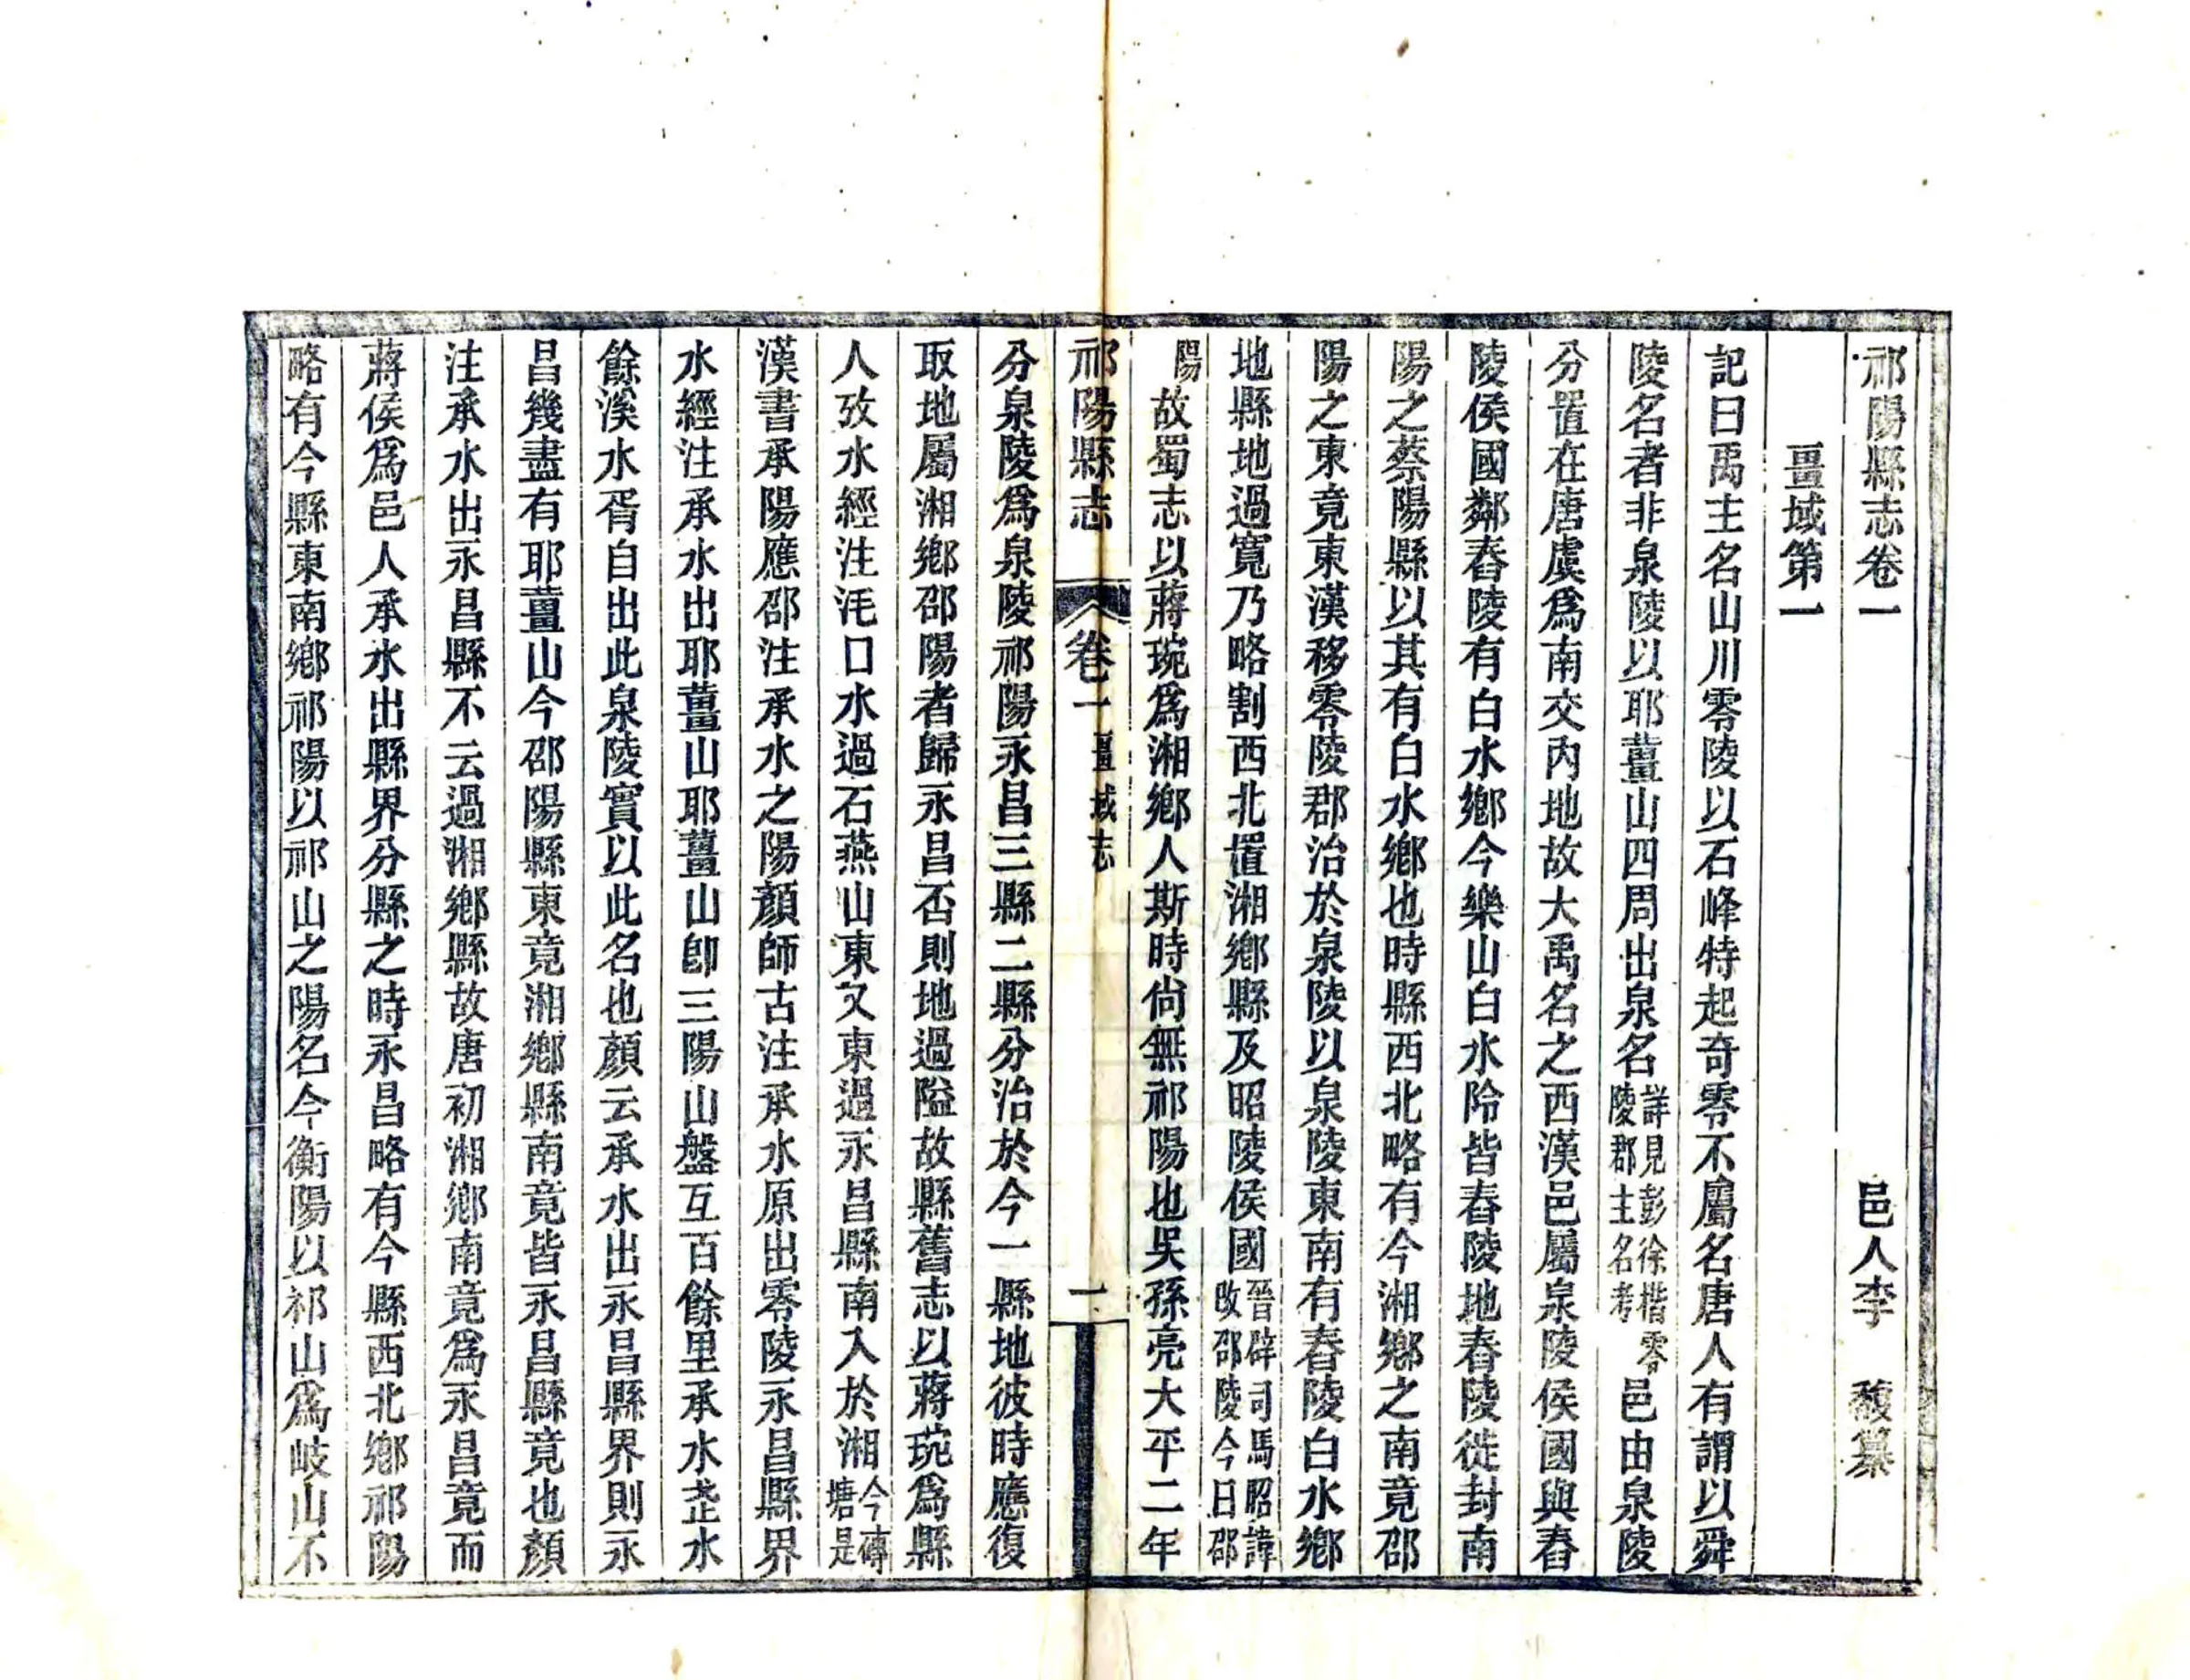 祁陽縣志卷一
邑人李　馥纂
畺域第一
記曰禹主名山川零陵以石峰特起奇零不屬名唐人有謂以舜
陵名者非泉陵以耶薑山四周出泉名詳見彭徐楷零陵郡主名考邑由泉陵
分置在唐虞爲南交内地故大禹名之西漢邑屬泉陵侯國與舂
陵侯國鄰舂陵有白水鄉今樂山白水阾皆舂陵地舂陵徙封南
陽之蔡陽縣以其有白水鄉也時縣西北略有今湘鄉之南竟邵
陽之東竟東漢移零陵郡治於泉陵以泉陵東南有舂陵白水鄉
地縣地過寬乃略割西北置湘鄉縣及昭陵侯國晉辟司馬昭諱改邵陵今日邵
陽故蜀志以蔣琬爲湘鄉人斯時尙無祁陽也吳孫亮大平二年
祁陽縣志　卷一畺域志　一
分泉陵爲泉陵祁陽永昌三縣二縣分治於今一縣地彼時應復
取地屬湘鄉邵陽者歸永昌否則地過隘故縣舊志以蔣琬爲縣
人攷水經注浘口水過石燕山東又東過永昌縣南入於湘今磚塘是
漢書承陽應邵注承水之陽顏師古注承水原出零陵永昌縣界
水經注承水出耶薑山耶薑山卽三陽山盤互百餘里承水歨水
餘溪水胥自出此泉陵實以此名也顏云承水出永昌縣界則永
昌幾盡有耶薑山今邵陽縣東竟湘鄉縣南竟皆永昌縣竟也顏
注承水出永昌縣不云過湘鄉縣故唐初湘鄉南竟爲永昌竟而
蔣侯爲邑人承水出縣界分縣之時永昌略有今縣西北鄉祁陽
略有今縣東南鄉祁陽以祁山之陽名今衡陽以祁山爲岐山不